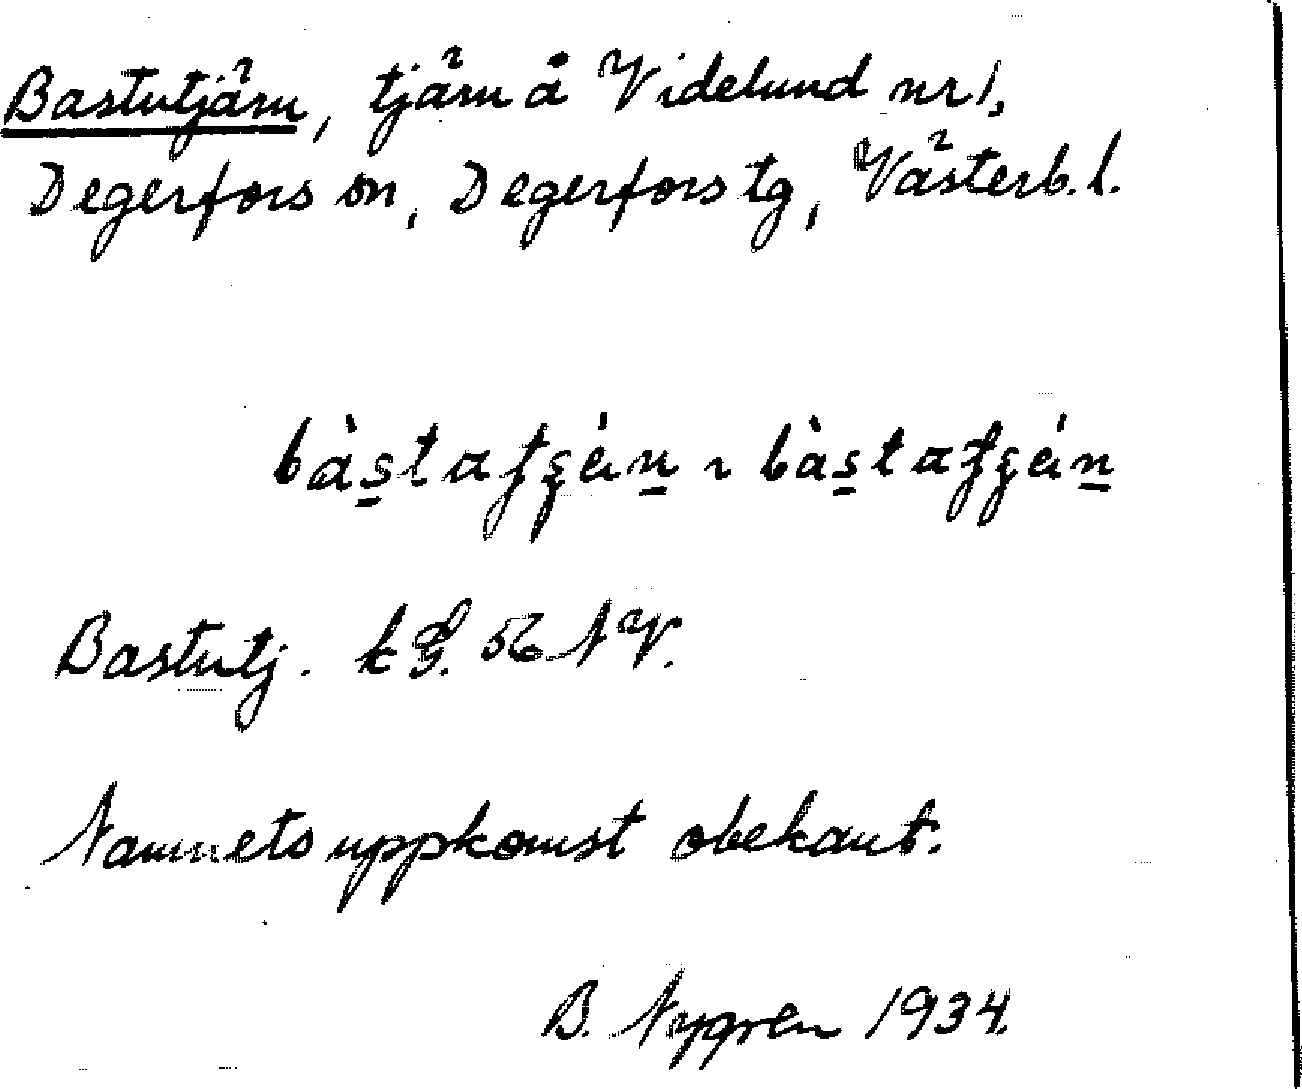 Bastutjärn, tjärn å Videlund nr 1,
Degerfors sn, Degerfors tg, Västerb. l.
Bastutj. kG. 56 NV.
Namnets uppkomst obekant.
B. Nygren 1934.